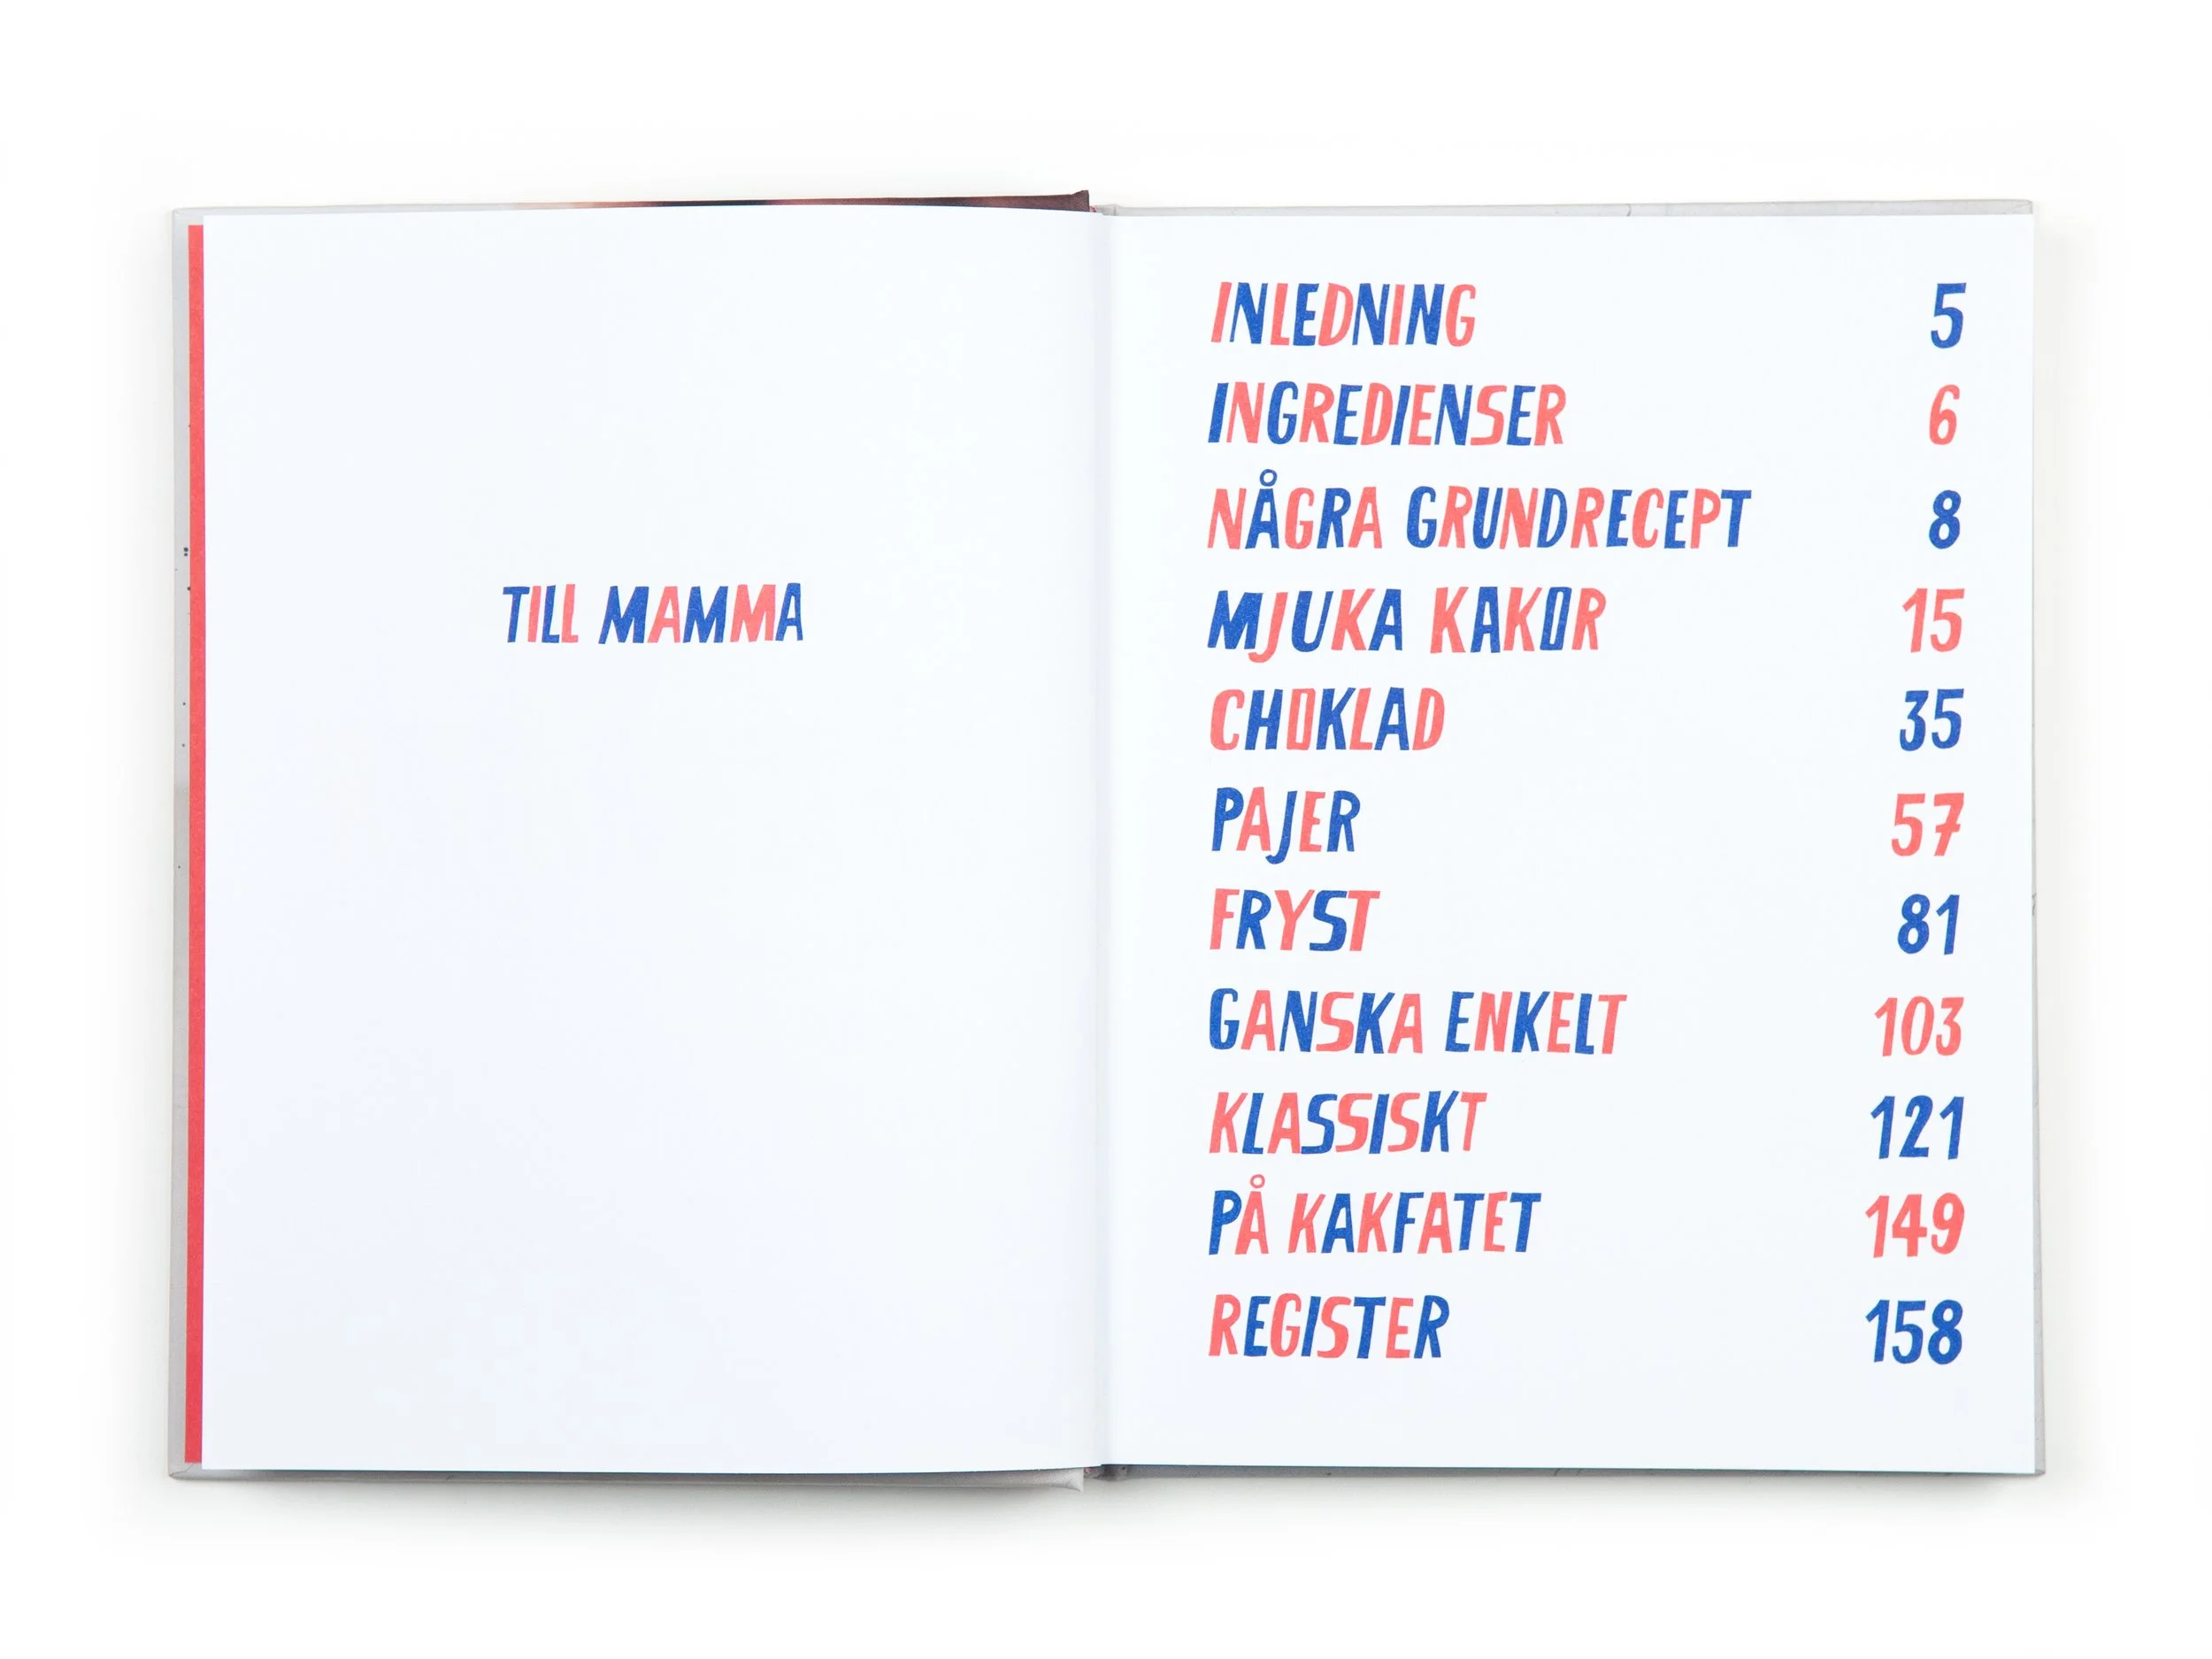 TILL MAMMA
INLEDNING 5
INGREDIENSER 6
NÅGRA GRUNDRECEPT 8
MJUKA KAKOR 15
CHOKLAD 35
PAJER 57
FRYST 81
GANSKA ENKELT 103
KLASSISKT 121
PÅ KAKFATET 149
REGISTER 158